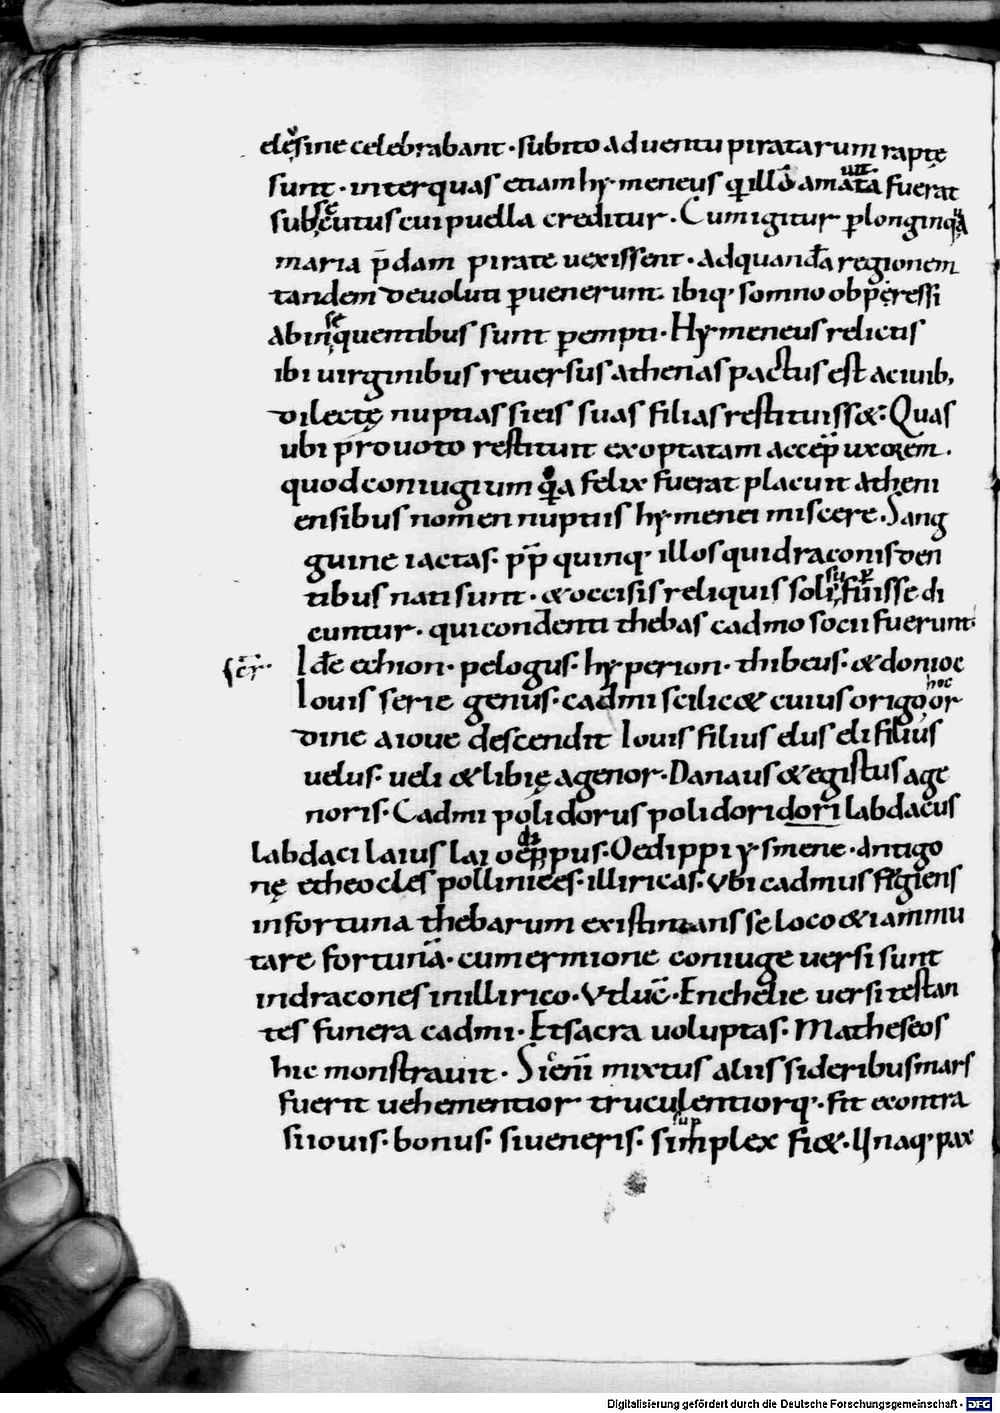 elesine celebrabant · subito aduentu piratarum raptę
sunt · interquas etiam hymeneus q illā amata fuerat
subsecutus cui puella creditur · Cum igitur p longinqua
maria p̄dam piratę uexissent · ad quandā regionem
tandem deuoluti puenerunt. ibiq; somno obpressi
ab insequentibus sunt pempti · Hymeneus relictis
ibi uirginibus reuersus athenas pactus est a ciuib;
dilectę nuptias si eis suas filias restituiss&· Quas
ubi pro uoto restituit exoptatam accep̄ uxorem ·
quod coniugium q̄a felix fuerat placuit atheni
ensibus nomen nuptiis hymenei miscere · Sang
guine iactas · pp̄ quinq; illos qui draconis den
tibus nati sunt · & occisis reliquis soli supfuisse di
cuntur · qui condenti thebas cadmo socii fuerunt·
scr̄· Id ē echion · pelogus · hyperion · thibeus · & donioc
Iouis serie genus · cadmi scilic& cuius origo hoc or
dine a ioue descendit Iouis filius elus eli filius
uelus · ueli & libię agenor · Danaus & egistus age
noris · Cadmi polidorus polidori dori labdacus
labdaci laius lai oedippus · Oedippi ysmene · antigo
nę etheocles pollinices · illiricas · Vbi cadmus fugiens
infortuna thebarum existimans se loco & iam mu
tare fortunā · cum ermione coniuge uersi sunt
in dracones in illirico · Vt luc̄ · Enchelie uersi testan
tes funera cadmi · Et sacra uoluptas · Matheseos
hic monstrauit · Si eni mixtus aliis sideribus mars
fuerit uehementior truculentiorq; · fit econtra
si iouis · bonus · si ueneris · simplex fi& · Unaq; pax
Digitalisierung gefördert durch die Deutsche Forschungsgemeinschaft - DFG